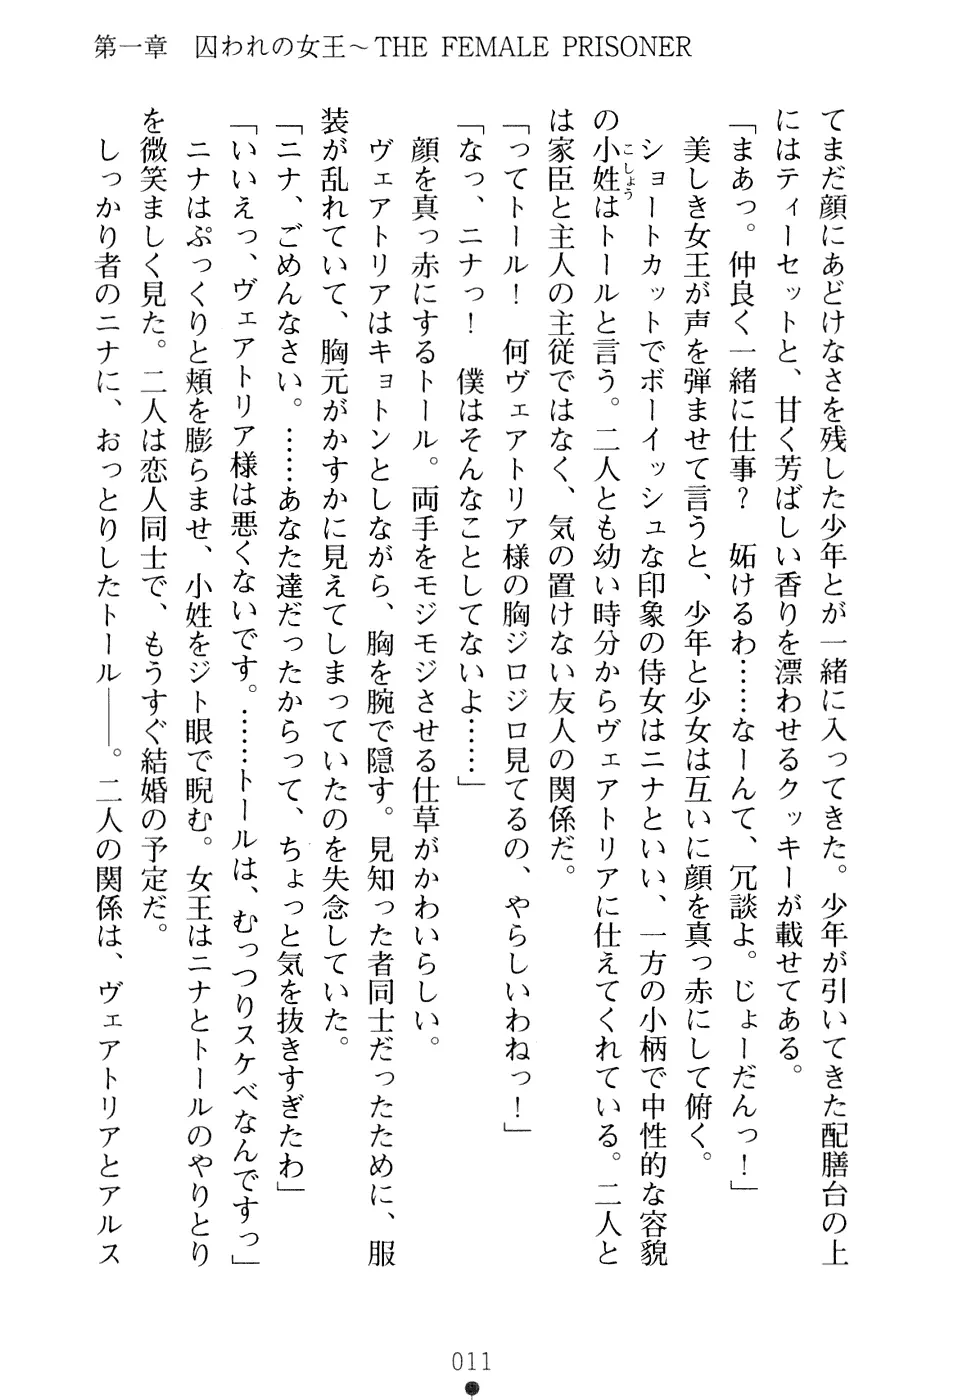 第一章　囚われの女王～THE FEMALE PRISONER
てまだ顔にあどけなさを残した少年とが一緒に入ってきた。少年が引いてきた配膳台の上
にはティーセットと、甘く芳ばしい香りを漂わせるクッキーが載せてある。
「まあっ。仲良く一緒に仕事？　妬けるわ……なーんて、冗談よ。じょーだんっ！」
　美しき女王が声を弾ませて言うと、少年と少女は互いに顔を真っ赤にして俯く。
　ショートカットでボーイッシュな印象の侍女はニナといい、一方の小柄で中性的な容貌
の小姓はトールと言う。二人とも幼い時分からヴェアトリアに仕えてくれている。二人と
こしょう
は家臣と主人の主従ではなく、気の置けない友人の関係だ。
「ってトール！　何ヴェアトリア様の胸ジロジロ見てるの、やらしいわねっ！」
「なっ、ニナっ！　僕はそんなことしてないよ……」
　顔を真っ赤にするトール。両手をモジモジさせる仕草がかわいらしい。
　ヴェアトリアはキョトンとしながら、胸を腕で隠す。見知った者同士だったために、服
装が乱れていて、胸元がかすかに見えてしまっていたのを失念していた。
「ニナ、ごめんなさい。……あなた達だったからって、ちょっと気を抜きすぎたわ」
「いいえっ、ヴェアトリア様は悪くないです。……トールは、むっつりスケベなんですっ」
　ニナはぷっくりと頬を膨らませ、小姓をジト眼で睨む。女王はニナとトールのやりとり
を微笑ましく見た。二人は恋人同士で、もうすぐ結婚の予定だ。
　しっかり者のニナに、おっとりしたトール――。二人の関係は、ヴェアトリアとアルス
011